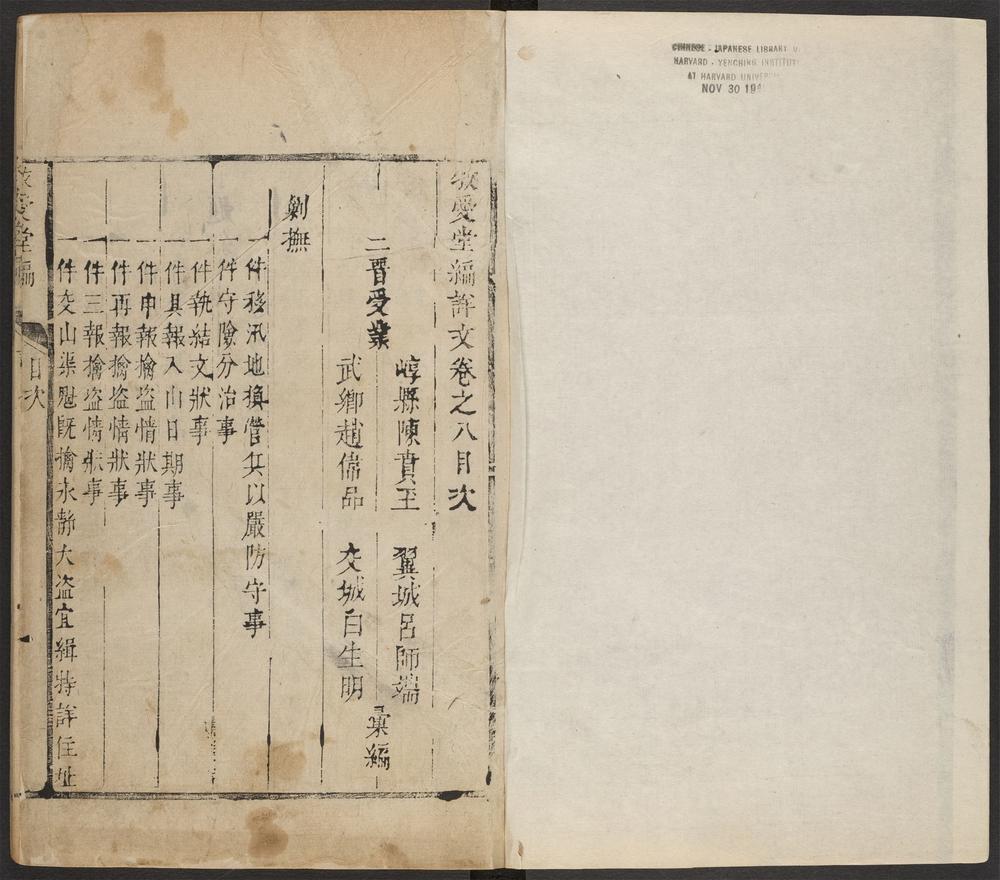 牧愛堂編詳文卷之八目次
二晋受業
崞縣陳賁至 翼城呂師端
武鄉趙偉品 交城白生明
彙編
剿撫
一件移汛地換營兵以嚴防守事
一件守險分治事
一件執結文狀事
一件具報入山日期事
一件申報擒盜情狀事
一件再報擒盜情狀事
一件三報擒盜情狀事
一件交山渠魁既擒永靜大盜宜緝特詳住址
愛堂編
目次
CHINESE - JAPANESE LIBRARY
HARVARD - YENCHING INSTITUTE
AT HARVARD
NOV 30